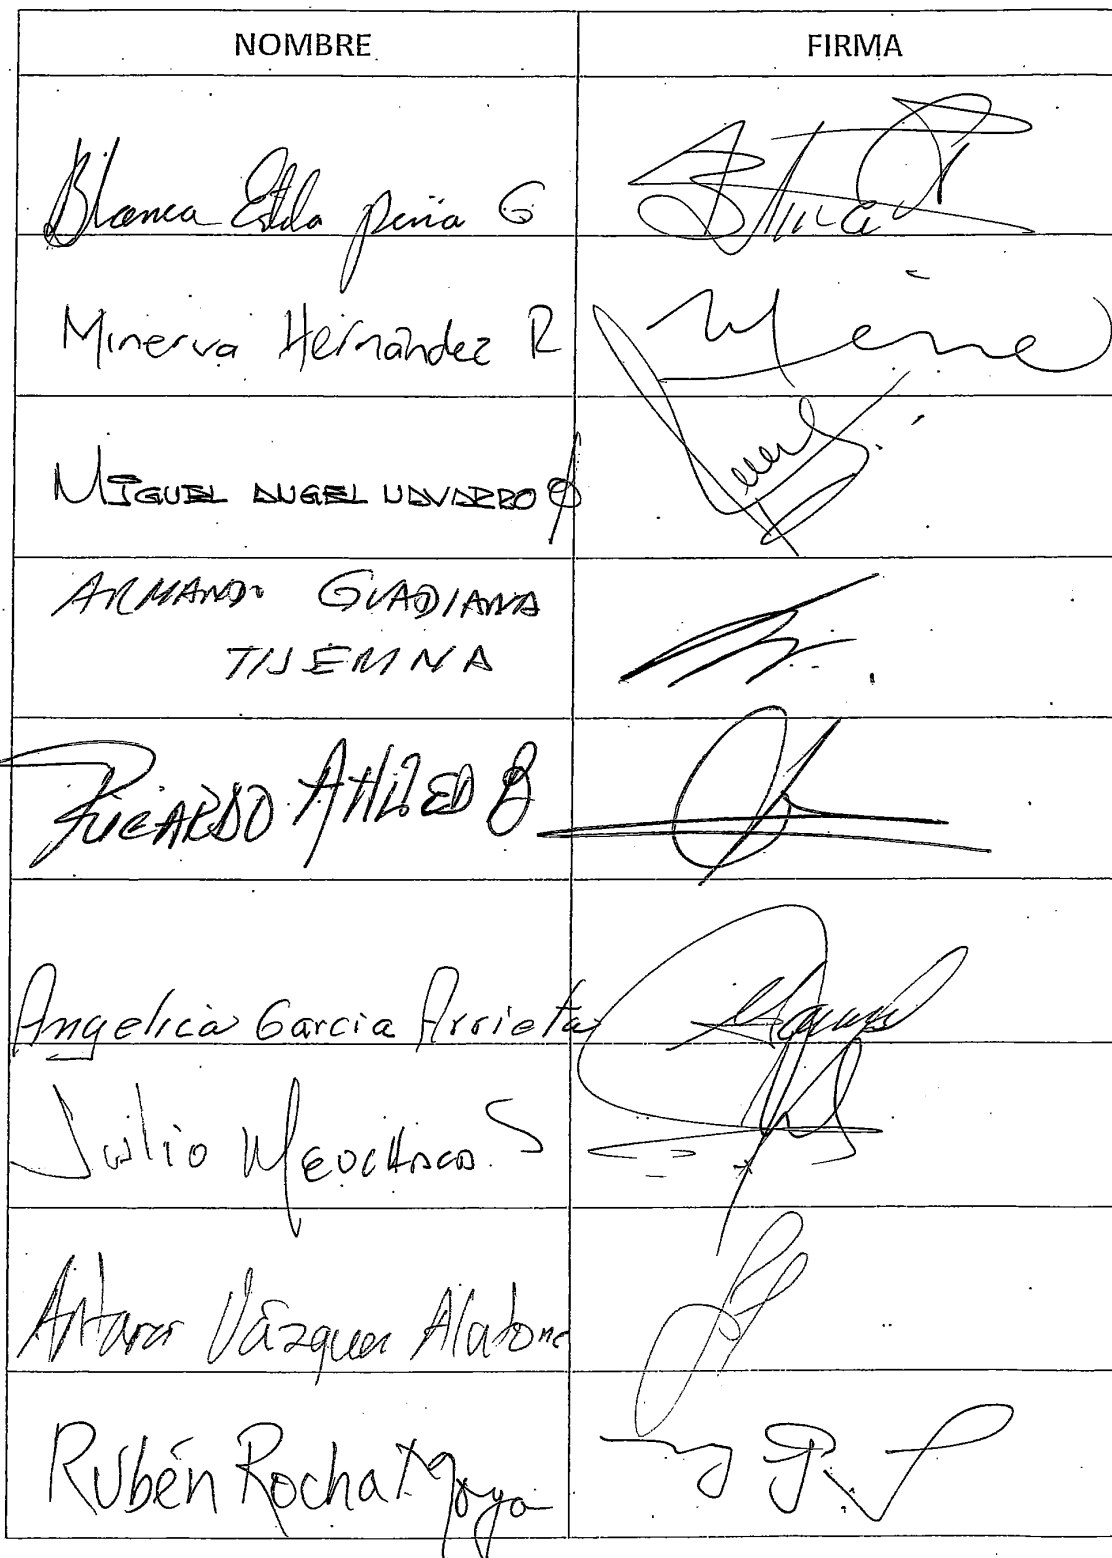 NOMBRE FIRMA
Blanca Estela piña G
Minerva Hernández R
MIGUEL ANGEL NAVARRO Q
ARMANDO GUADIANA
TIJERINA
RICARDO AHUED B
Angelica Garcia Arrieta
Julio Menchaca S
Antares Vázquez Alatorre
Rubén Rocha Moya